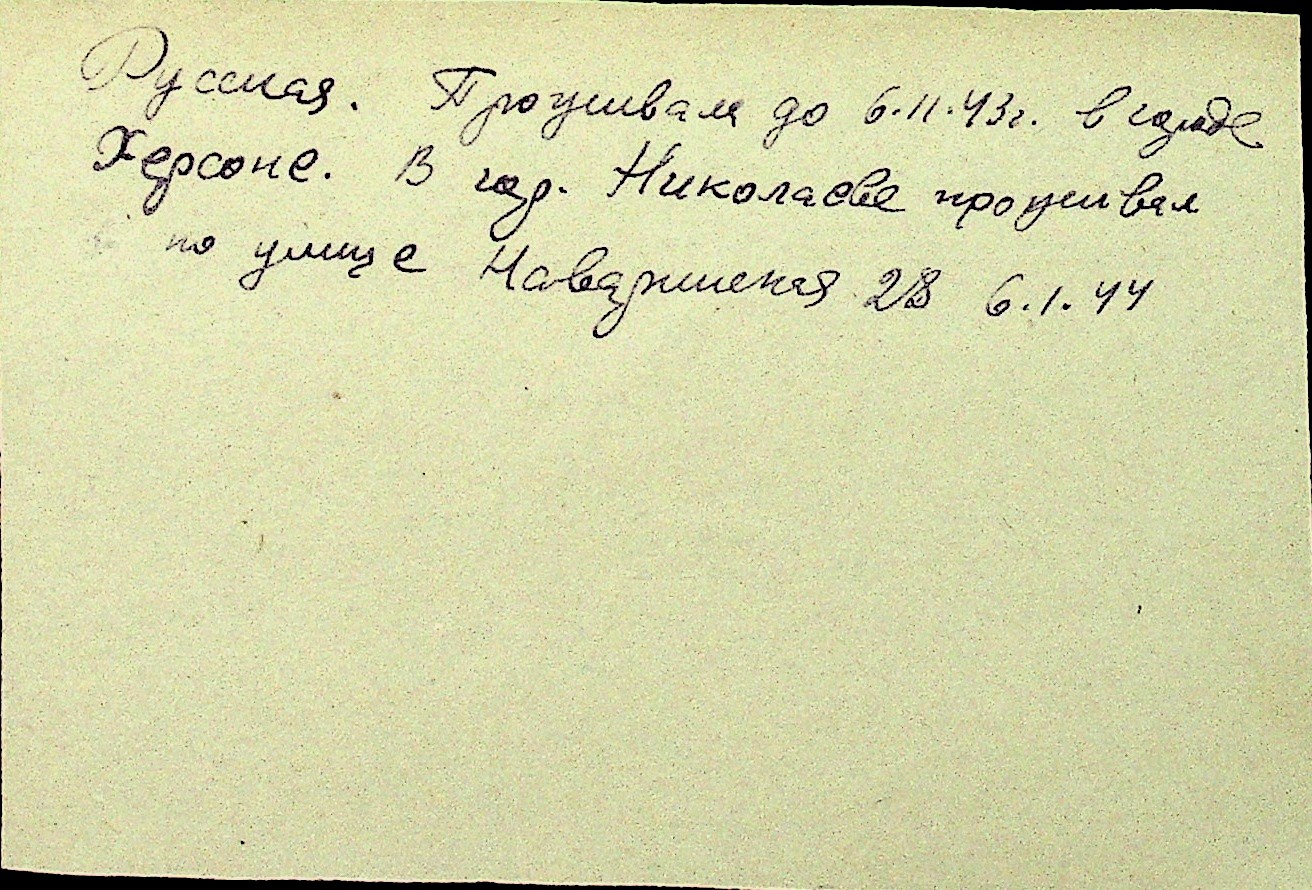 Русская. Проживал до 6.11.43г. в городе
Херсоне. В гор. Николаеве проживал
по улице Наваринская 28 6.1.44